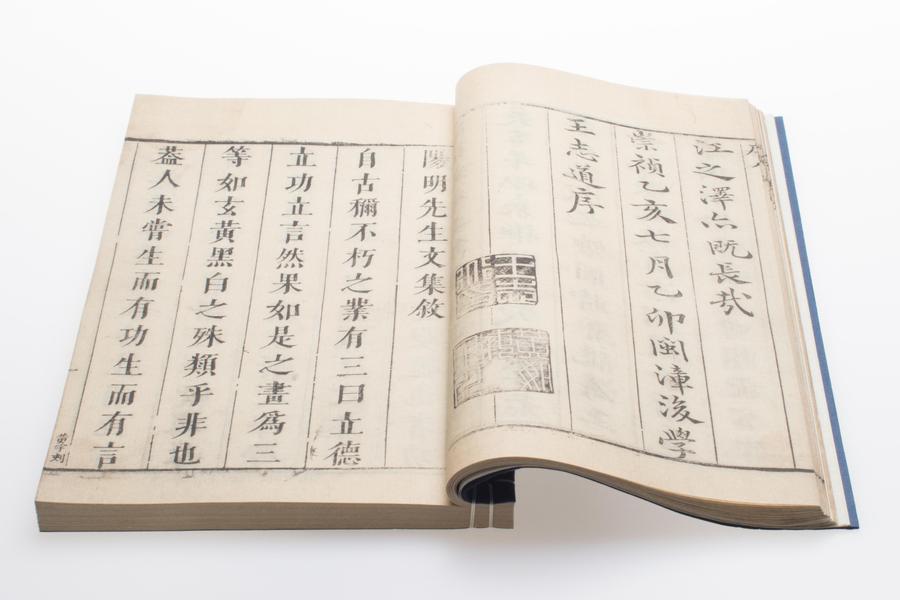 江之澤亦既長哉
崇禎乙亥七月乙卯閩漳後學
王志道序
陽明先生文集敘
自古稱不朽之業有三曰立德
立功立言然果如是之畫爲三
等如玄黃黑白之殊類乎非也
蓋人未嘗生而有功生而有言